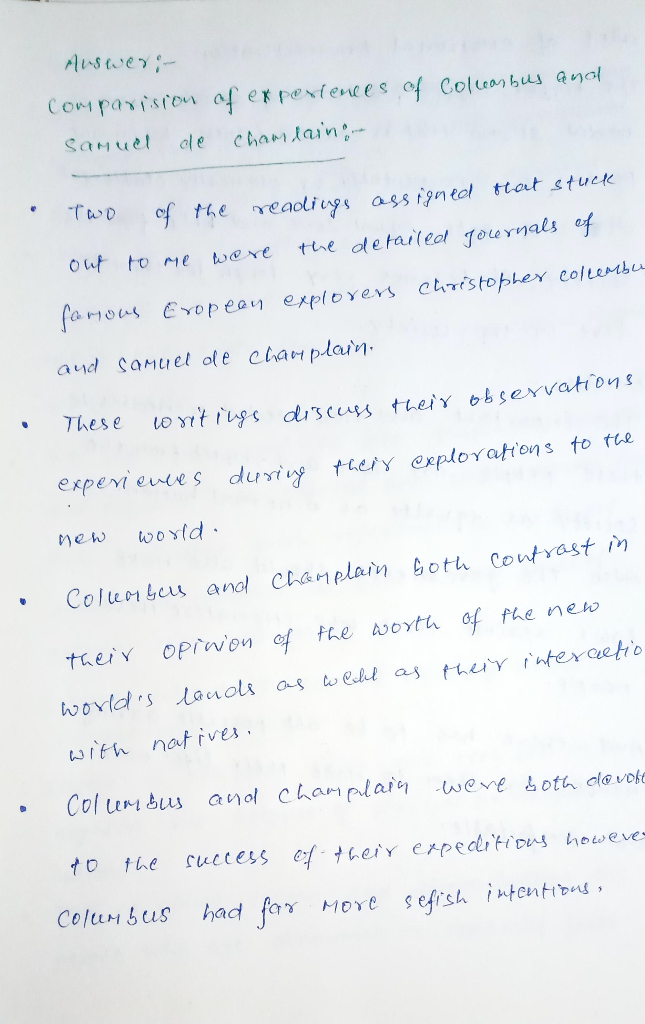 Answer:-
Comparision of experiences of Columbus and
Samuel de Chamlain:-
• Two of the readings assigned that stuck
out to me were the detailed journals of
famous Eropean explorers Christopher columbu
and Samuel de Champlain.
• These writings discuss their observations
experiences during their explorations to the
new world.
• Columbus and Champlain both contrast in
their opinion of the worth of the new
world's lands as well as their interactio
with natives.
• Columbus and Champlain were both devote
to the success of their expeditions howeve
Columbus had far more sefish intentions.